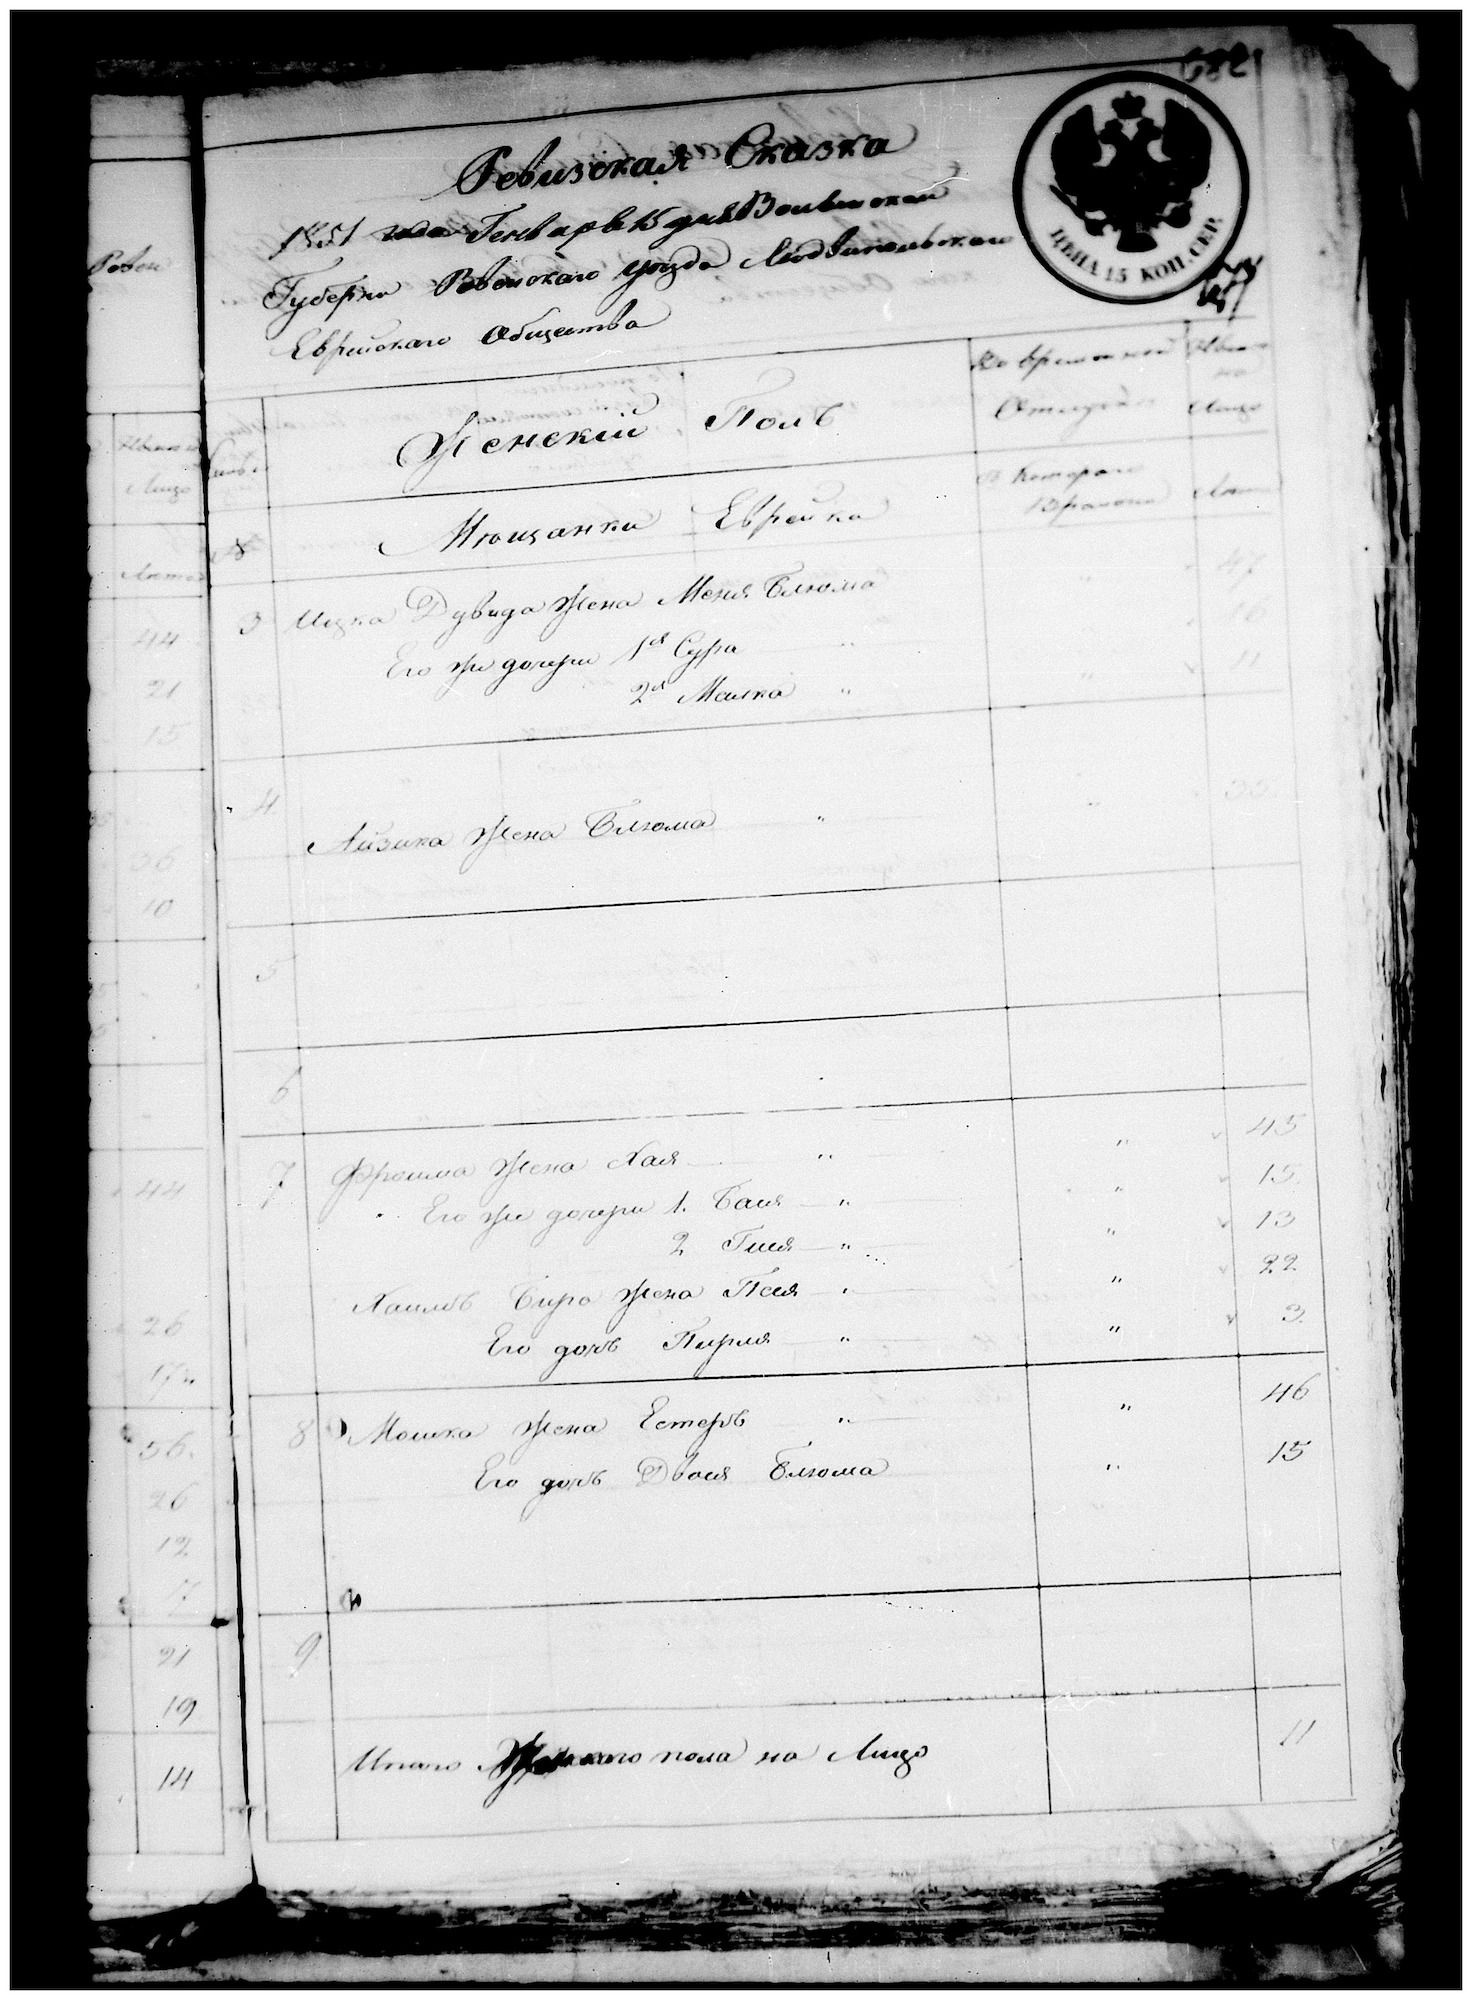 682
Ревизская Сказка
1851 года Генваря 15 дня Волынской
Губерни Ровенскаго уезда Людвипольскаго
Еврейскаго Общества
ЦѢНА 15 КОП. СЕР.
Женский Полъ
Во временной
Отлучке
Ныне
на
Лицо
№
Мещанки Еврейки
С Котораго
Времени
Лета
3 Ицка Дувида Жена Меня Блюма " 47
Его же дочери 1я Сура " 16
2я Малка " " 11
4
Айзика Жена Блюма " " 35
5
6
7 Фроима Жена Хая " " 45
Его же дочери 1. Бася " " 15
2 Гися " " 13
Жена Песя " " 22
Его дочь Перля " " 3
8 Мошка Жена Естеръ " " 46
Его дочь Двося Блюма " 15
9
Итого Женскаго пола на Лицо 11
Ровен
Лицо
Лета
44
21
15
36
10
44
26
17
56
26
12
21
19
14